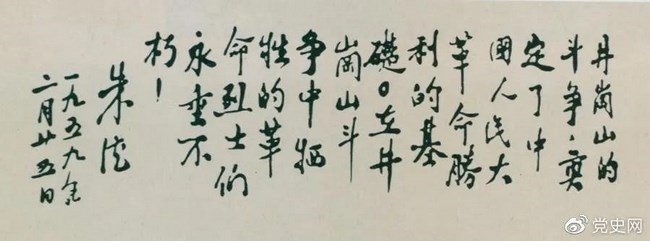 井崗山的
斗争,奠
定了中
國人民大
革命勝
利的基
礎。在井
崗山斗
争中牺
牲的革
命烈士们
永垂不
朽!
朱德
一九五九年
二月廿五日
党史网